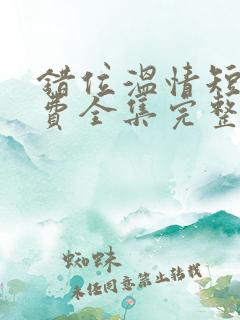 错位温情短
费全集完整
蜘蛛
未经同意禁止转载